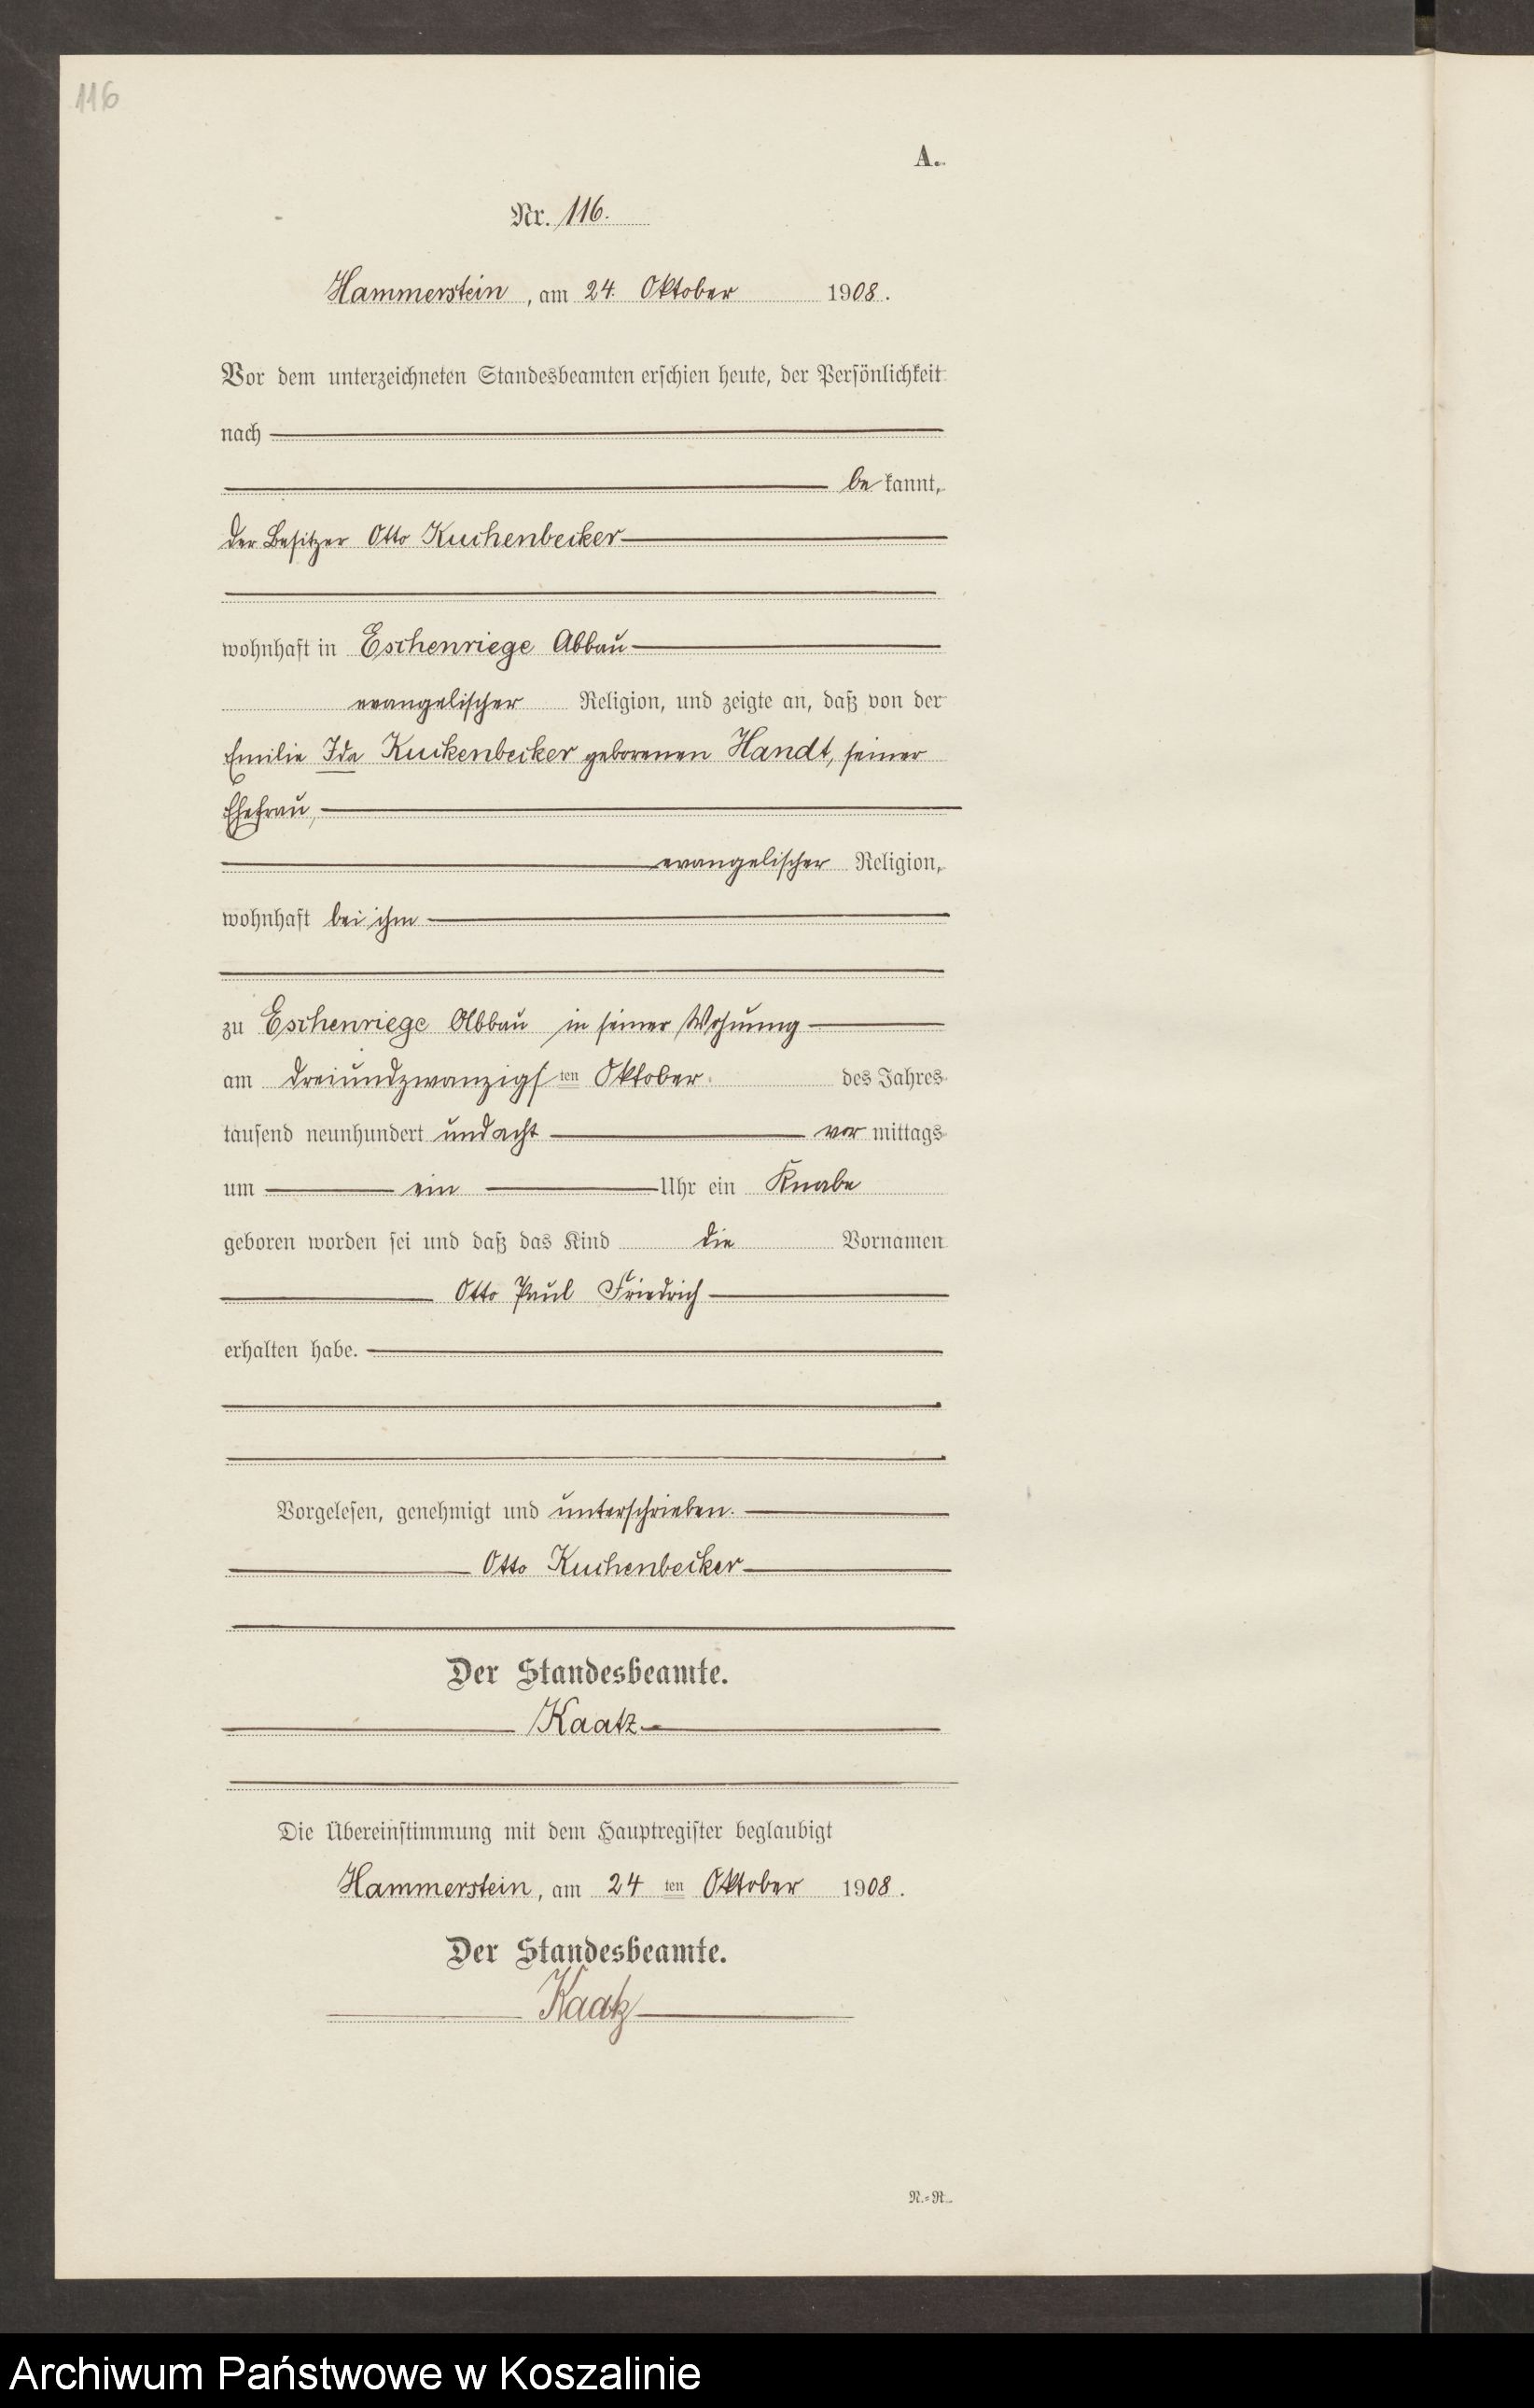 116
A.
Nr. 116.
Hammerstein, am 24. Oktober 1908.
Vor dem unterzeichneten Standesbeamten erschien heute, der Persönlichkeit
nach
be kannt,
der Besitzer Otto Kuchenbecker
wohnhaft in Eschenriege Abbau
evangelischer Religion, und zeigte an, daß von der
Emilie Ida Kuckenbecker geborenen Handt, seiner
Ehefrau,
evangelischer Religion,
wohnhaft bei ihm
zu Eschenriege Abbau in seiner Wohnung
am dreiundzwanzigsten Oktober des Jahres
tausend neunhundert undacht vor mittags
um ein Uhr ein Knabe
geboren worden sei und daß das Kind die Vornamen
Otto Paul Friedrich
erhalten habe.
Vorgelesen, genehmigt und unterschrieben.
Otto Kuchenbecker
Der Standesbeamte.
Kaatz
Die Übereinstimmung mit dem Hauptregister beglaubigt
Hammerstein, am 24 ten Oktober 1908.
Der Standesbeamte.
Kaatz
N.=R.
Archiwum Państwowe w Koszalinie